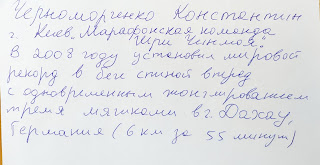 Черноморченко Константин
г. Киев. Марафонская команда
"Шри Чинмой".
В 2008 году установил мировой
рекорд в беге спиной вперёд
с одновременным жонглированием
тремя мячиками в г. Дахау,
Германия (6 км за 55 минут)